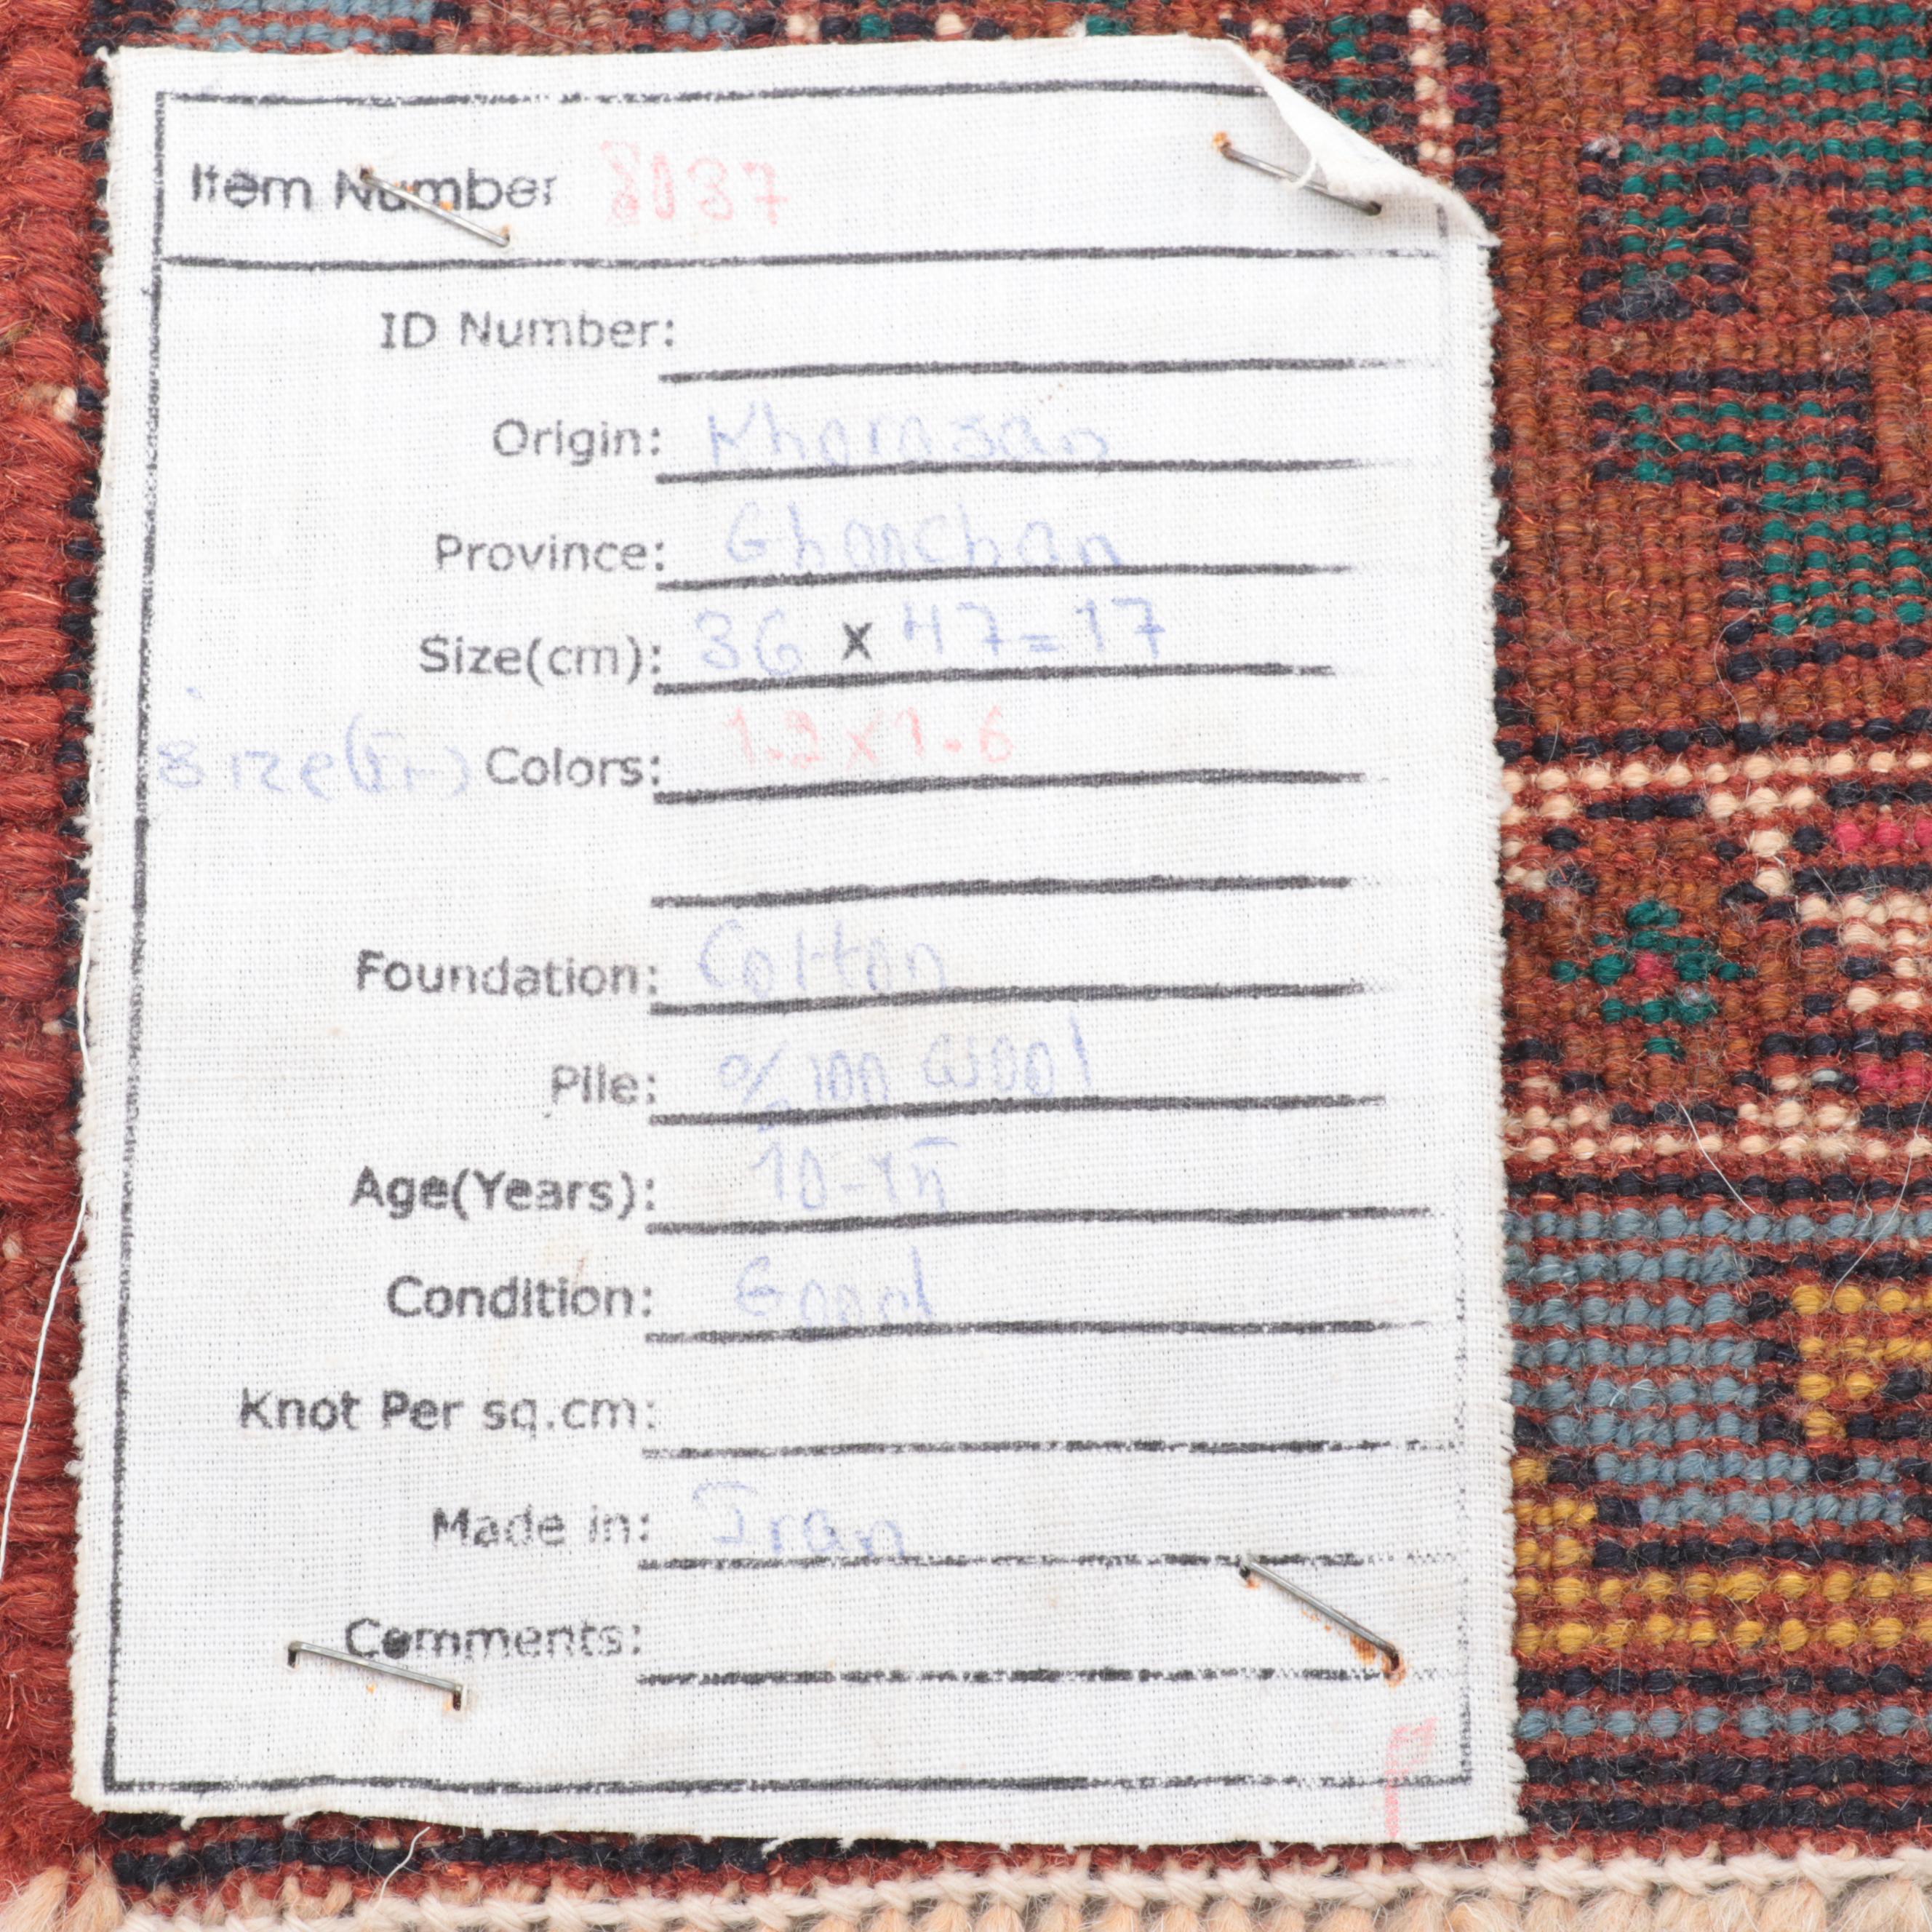 Item Number 8037
ID Number:
Origin: Khorasan
Province: Ghonchan
Size(cm): 36 x 47=17
Size(Fr) Colors: 1.2x1.6
Foundation: Cotton
Pile: % 100 Wool
Age(Years): 10-15
Condition: Good
Knot Per sq.cm:
Made in: Iran
Comments: